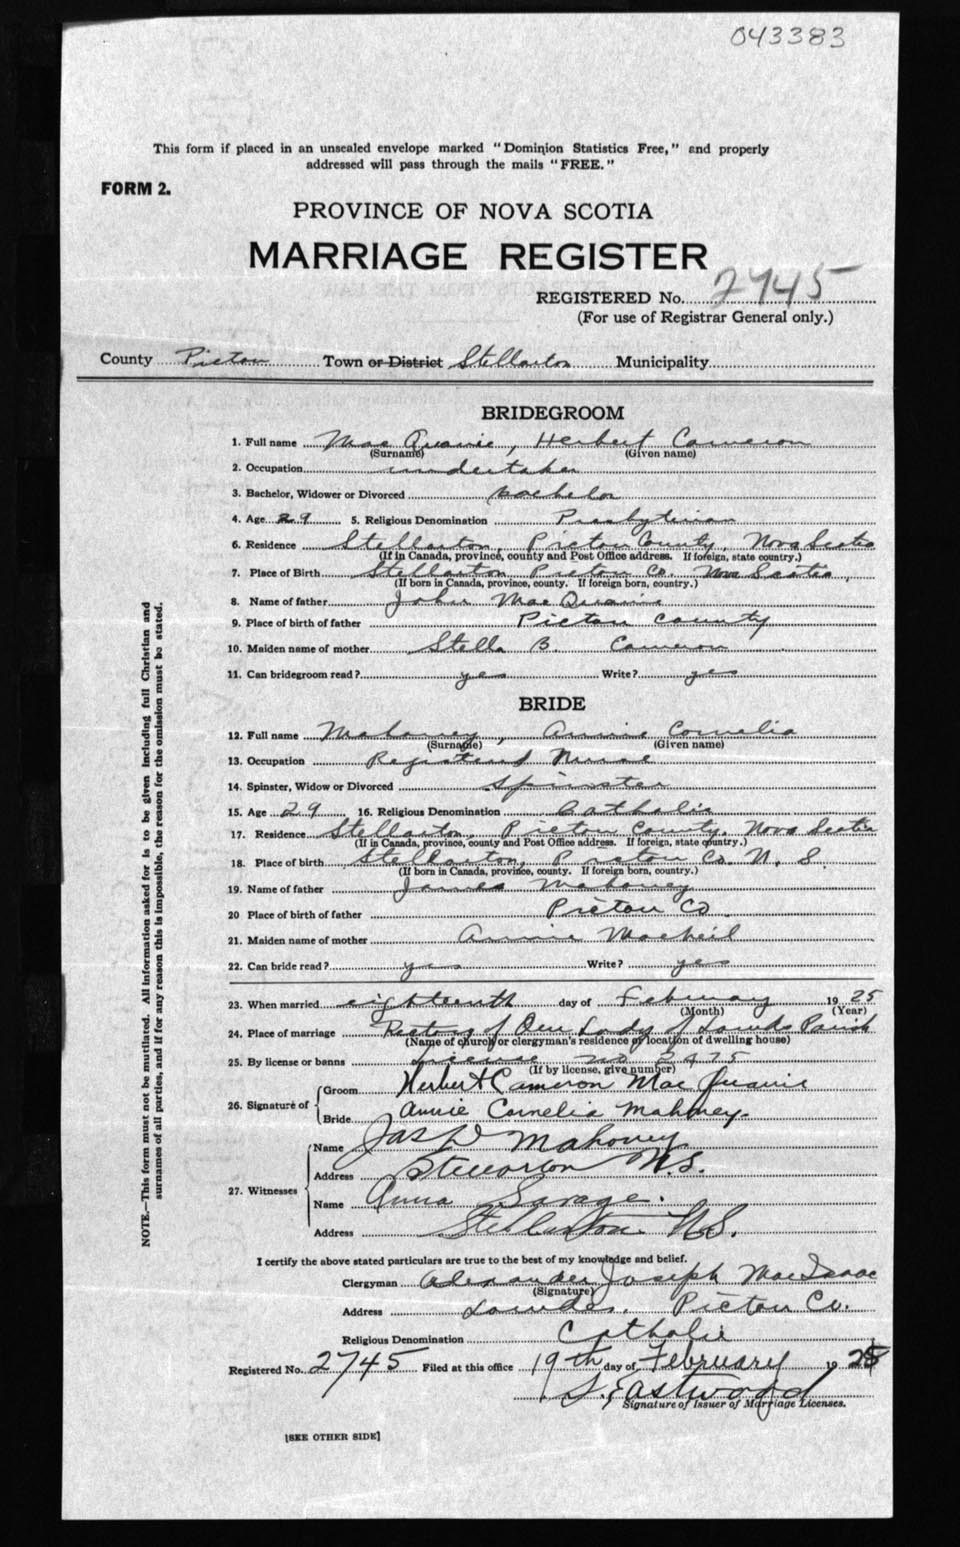 043383
This form if placed in an unsealed envelope marked "Dominion Statistics Free," and properly
addressed will pass through the mails "FREE."
FORM 2.
PROVINCE OF NOVA SCOTIA
MARRIAGE REGISTER
REGISTERED No. 2745
(For use of Registrar General only.)
County Pictou Town or District Stellarton Municipality
BRIDEGROOM
1. Full name MacQuarrie, Herbert Cameron
(Surname) (Given name)
2. Occupation undertaker
3. Bachelor, Widower or Divorced bachelor
4. Age 29 5. Religious Denomination Presbyterian
6. Residence Stellarton, Pictou County, Nova Scotia
(If in Canada, province, county and Post Office address. If foreign, state country.)
7. Place of Birth Stellarton Pictou Co. Nova Scotia
(If born in Canada, province, county. If foreign born, country.)
8. Name of father John MacQuarrie
9. Place of birth of father Pictou County
10. Maiden name of mother Stella B. Cameron
11. Can bridegroom read? yes Write? yes
BRIDE
12. Full name Mahoney, Annie Cornelia
(Surname) (Given name)
13. Occupation Registered Nurse
14. Spinster, Widow or Divorced Spinster
15. Age 29 16. Religious Denomination Catholic
17. Residence Stellarton, Pictou County, Nova Scotia
(If in Canada, province, county and Post Office address. If foreign, state country.)
18. Place of birth Stellarton, Pictou Co. N. S.
(If born in Canada, province, county. If foreign born, country.)
19. Name of father James Mahoney
20 Place of birth of father Pictou Co.
21. Maiden name of mother Annie MacNeil
22. Can bride read? yes Write? yes
23. When married eighteenth day of February 1925
(Month) (Year)
24. Place of marriage Rectory of Our Lady of Lourdes Parish
(Name of church or clergyman's residence or location of dwelling house)
25. By license or banns License no 2475
(If by license, give number)
26. Signature of
Groom Herbert Cameron MacQuarrie
Bride Annie Cornelia Mahoney.
27. Witnesses
Name Jas D Mahoney
Address Stellarton N.S.
Name Anna Savage.
Address Stellarton N.S.
I certify the above stated particulars are true to the best of my knowledge and belief.
Clergyman Alexander Joseph MacIsaac
(Signature)
Address Lourdes, Pictou Co.
Religious Denomination Catholic
Registered No. 2745 Filed at this office 19th day of February 1925
Eastwood
Signature of Issuer of Marriage Licenses.
[SEE OTHER SIDE]
NOTE.—This form must not be mutilated. All information asked for is to be given including full Christian and
surnames of all parties, and if for any reason this is impossible, the reason for the omission must be stated.